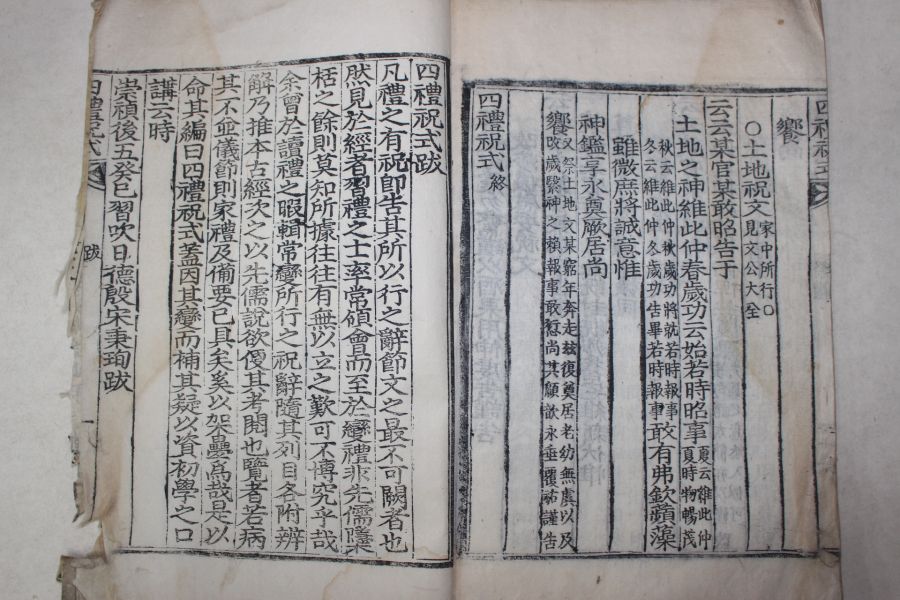 饗
○土地祝文 家中所行○見文公大全
云云某官某敢昭告于
土地之神維此仲春歲功云始若時昭事 夏云維此仲夏時物暢茂
秋云維此仲秋歲功將就若時報事冬云維此仲冬歲功告畢若時報事 敢有弗欽蘋藻
雖微庶將誠意惟
神鑑享永奠厥居尚
饗 又祭土地文某窮年奔走玆復奠居老幼無虞以及改歲繄神之賴報事敢愆尚其顧歆永垂覆祐謹告
四禮祝式 終
四禮祝式
四禮祝式跋
凡禮之有祝卽告其所以行之辭節文之最不可闕者也
然見於經者習禮之士率常領會而至於變禮非先儒櫽
栝之餘則莫知所據往往有無以立之歎可不博究乎哉
余曾於讀禮之暇輯常變所行之祝辭隨其列目各附辨
解乃推本古經次之以先儒說欲便其考閱也覽者若病
其不並儀節則家禮及備要已具矣奚以架疊爲哉是以
命其編曰四禮祝式蓋因其變而補其疑以資初學之口
講云時
崇禎後五癸巳習吹日德殷宋秉珣跋
四禮祝式
跋